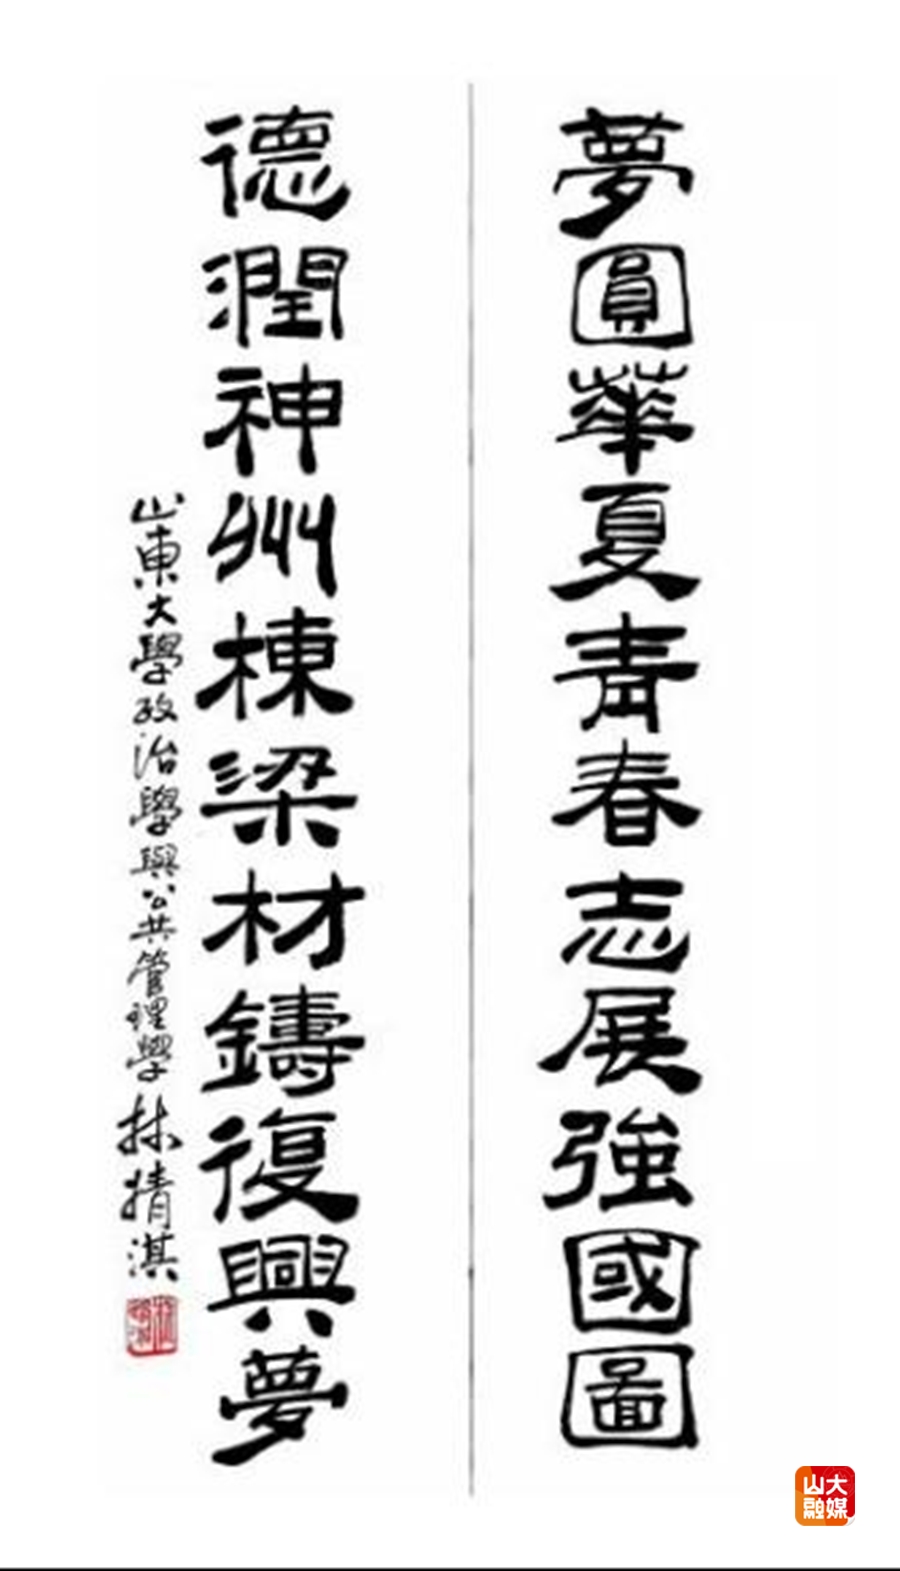 夢圓華夏青春志展強國圖
德潤神州棟梁材鑄復興夢
山東大學政治學與公共管理學 林婧淇
山大
融媒